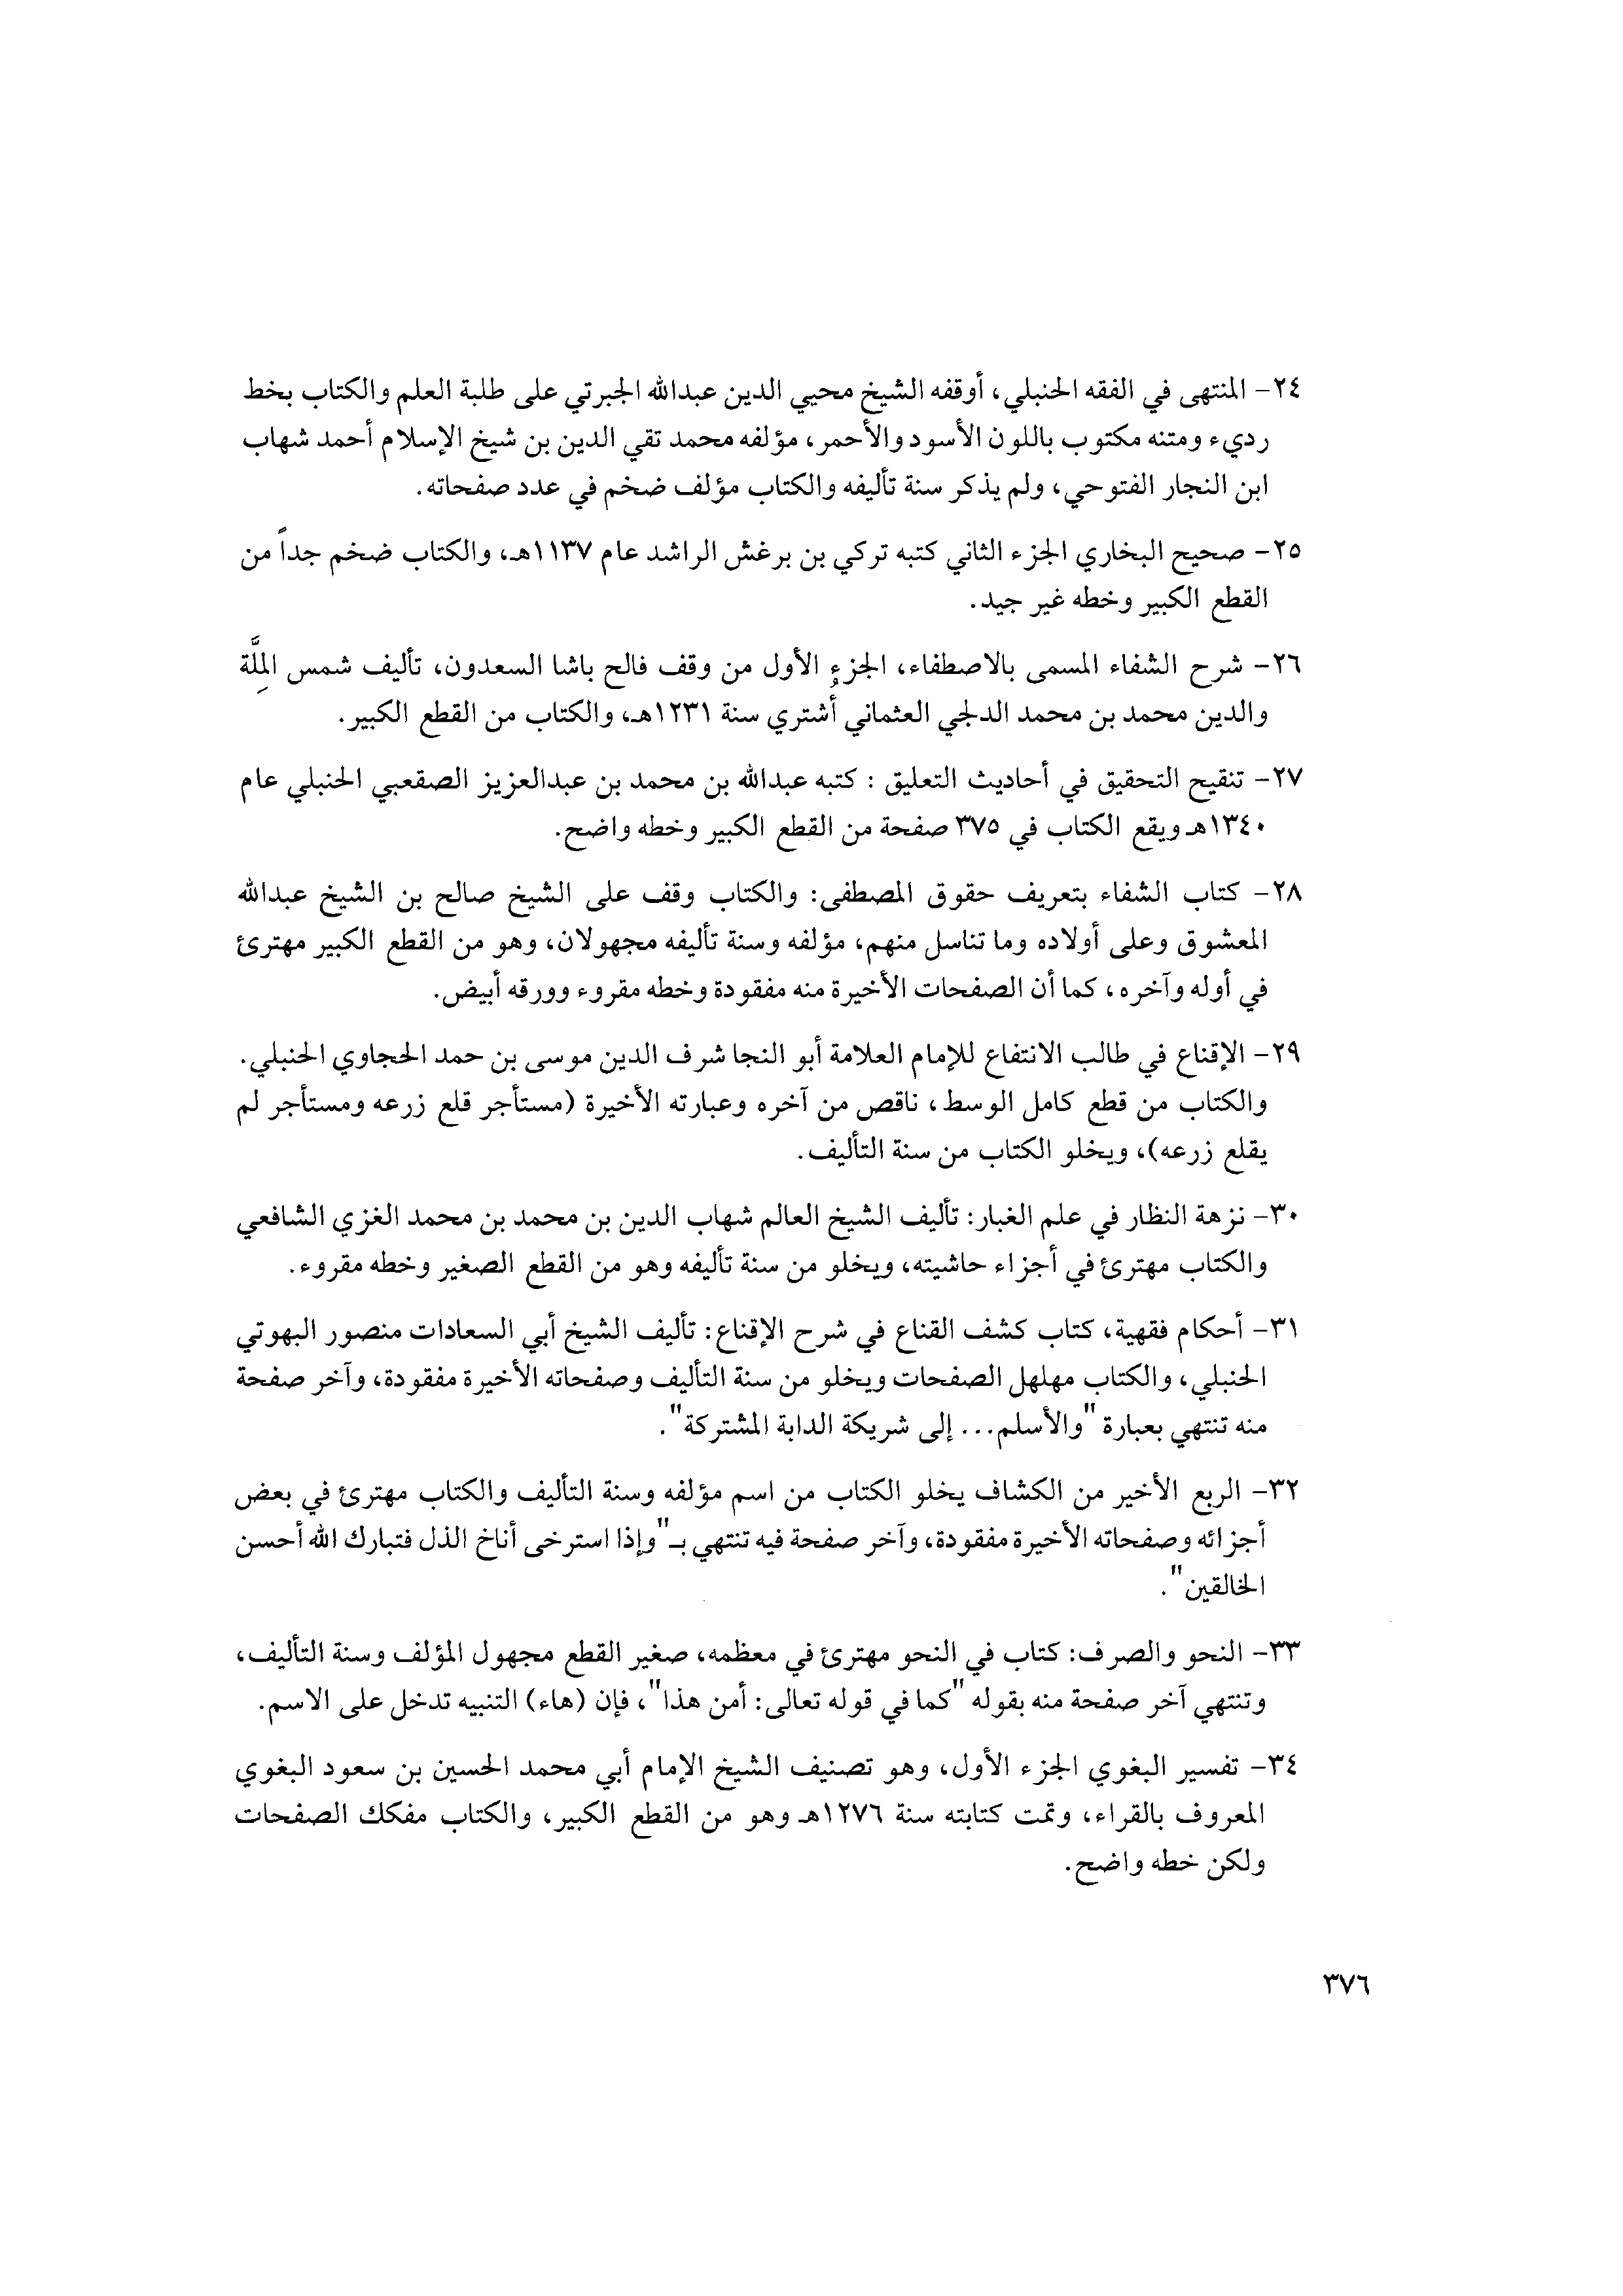 ٢٤- المنتهى في الفقه الحنبلي، أوقفه الشيخ محيي الدين عبدالله الجبرتي على طلبة العلم والكتاب بخط
رديء ومتنه مكتوب باللون الأسود والأحمر، مؤلفه محمد تقي الدين بن شيخ الإسلام أحمد شهاب
ابن النجار الفتوحي، ولم يذكر سنة تأليفه والكتاب مؤلف ضخم في عدد صفحاته.
٢٥- صحيح البخاري الجزء الثاني كتبه تركي بن برغش الراشد عام ١١٣٧هـ، والكتاب ضخم جداً من
القطع الكبير وخطه غير جيد.
٢٦- شرح الشفاء المسمى بالاصطفاء، الجزء الأول من وقف فالح باشا السعدون، تأليف شمس المِلَّة
والدين محمد بن محمد الدلجي العثماني أُشتري سنة ١٢٣١هـ، والكتاب من القطع الكبير.
٢٧- تنقيح التحقيق في أحاديث التعليق : كتبه عبدالله بن محمد بن عبدالعزيز الصقعبي الحنبلي عام
١٣٤٠هـ ويقع الكتاب في ٣٧٥ صفحة من القطع الكبير وخطه واضح.
٢٨- كتاب الشفاء بتعريف حقوق المصطفى: والكتاب وقف على الشيخ صالح بن الشيخ عبدالله
المعشوق وعلى أولاده وما تناسل منهم، مؤلفه وسنة تأليفه مجهولان، وهو من القطع الكبير مهترئ
في أوله وآخره، كما أن الصفحات الأخيرة منه مفقودة وخطه مقروء وورقه أبيض.
٢٩- الإقناع في طالب الانتفاع للإمام العلامة أبو النجا شرف الدين موسى بن حمد الحجاوي الحنبلي.
والكتاب من قطع كامل الوسط، ناقص من آخره وعبارته الأخيرة (مستأجر قلع زرعه ومستأجر لم
يقلع زرعه)، ويخلو الكتاب من سنة التأليف.
٣٠- نزهة النظار في علم الغبار: تأليف الشيخ العالم شهاب الدين بن محمد بن محمد الغزي الشافعي
والكتاب مهترئ في أجزاء حاشيته، ويخلو من سنة تأليفه وهو من القطع الصغير وخطه مقروء.
٣١- أحكام فقهية، كتاب كشف القناع في شرح الإقناع: تأليف الشيخ أبي السعادات منصور البهوتي
الحنبلي، والكتاب مهلهل الصفحات ويخلو من سنة التأليف وصفحاته الأخيرة مفقودة، وآخر صفحة
منه تنتهي بعبارة "والأسلم... إلى شريكة الدابة المشتركة".
٣٢- الربع الأخير من الكشاف يخلو الكتاب من اسم مؤلفه وسنة التأليف والكتاب مهترئ في بعض
أجزائه وصفحاته الأخيرة مفقودة، وآخر صفحة فيه تنتهي بـ"وإذا استرخى أناخ الذل فتبارك الله أحسن
الخالقين".
٣٣- النحو والصرف: كتاب في النحو مهترئ في معظمه، صغير القطع مجهول المؤلف وسنة التأليف،
وتنتهي آخر صفحة منه بقوله "كما في قوله تعالى: أمن هذا"، فإن (هاء) التنبيه تدخل على الاسم.
٣٤- تفسير البغوي الجزء الأول، وهو تصنيف الشيخ الإمام أبي محمد الحسين بن سعود البغوي
المعروف بالقراء، وتمت كتابته سنة ١٢٧٦هـ وهو من القطع الكبير، والكتاب مفكك الصفحات
ولكن خطه واضح.
٣٧٦